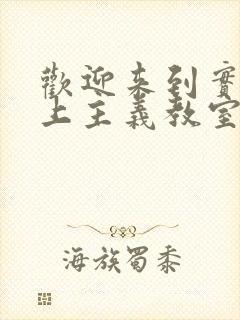 歡迎來到實
上主義教室
海族蜀黍